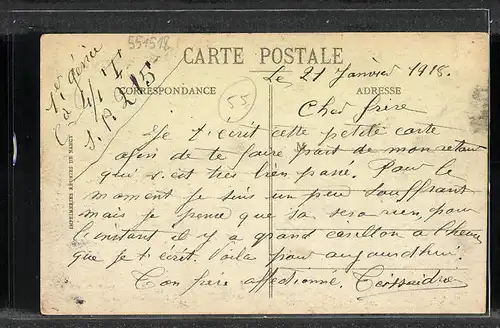 551518
1er Génie
Cie 4/1 T
S.P. 215
CARTE POSTALE
Le 21 Janvier 1918.
CORRESPONDANCE
55
ADRESSE
Cher frère
Je t'ecrit cette petite carte
afin de te faire part de mon retour
qui s'est très bien passé. Pour le
moment je suis un peu souffrant
mais je pense que sa sera rien, pour
l'instant il y a grand carillon a l'heure
que je t'ecrit. Voila pour aujourdhui.
Ton frère affectionné.
IMPRIMERIES RÉUNIES DE NANCY